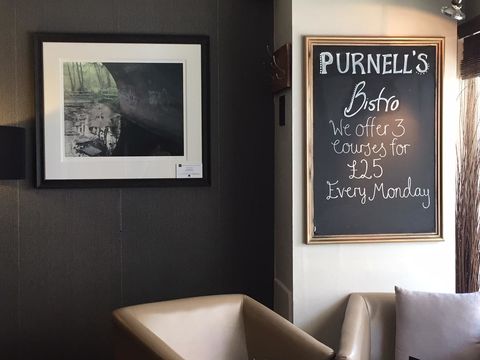 PURNELL'S
Bistro
We offer 3
Courses for
£25
Every Monday